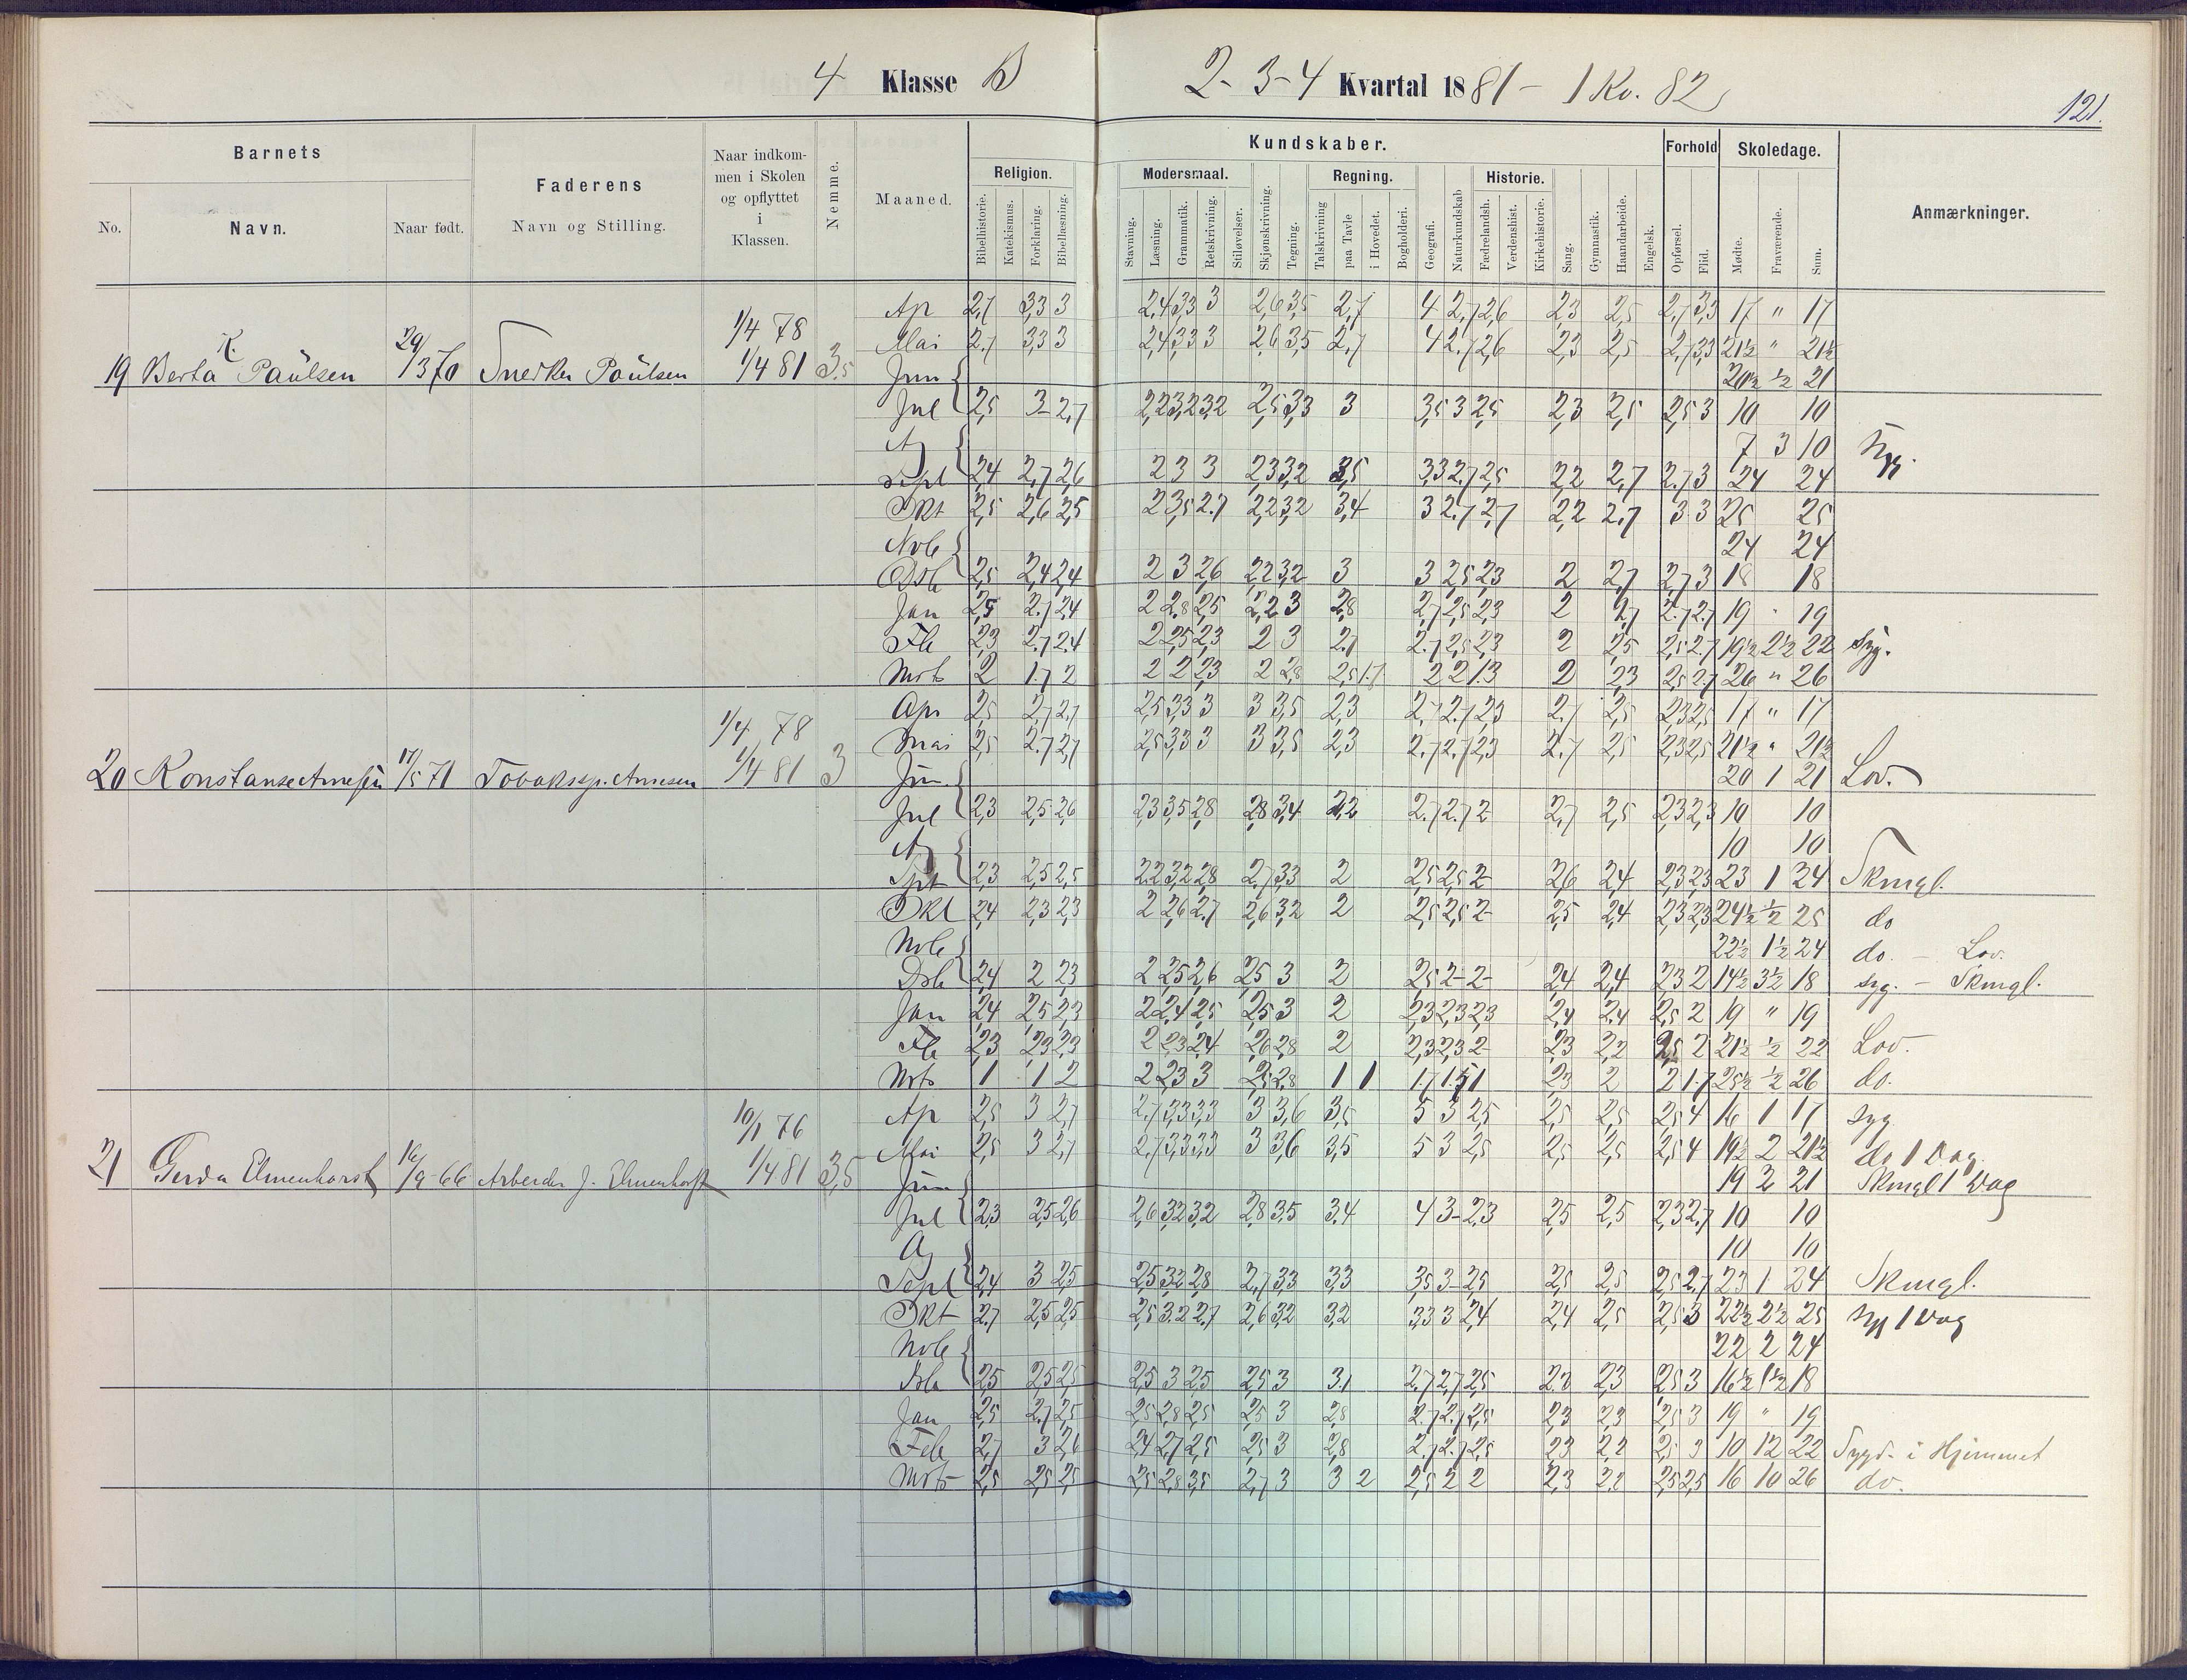 4 Klasse B 2-3-4 Kvartal 1881 - 1 Kv. 82
121.
Barnets
Faderens
Naar indkommen i Skolen og opflyttet i Klassen.
Nemme.
Maaned.
Kundskaber.
Forhold
Skoledage.
Anmærkninger.
No.
Navn.
Naar født.
Navn og Stilling.
Religion.
Modersmaal.
Regning.
Historie.
Bibelhistorie. Katekismus. Forklaring. Bibellæsning.
Stavning. Læsning. Grammatik. Retskrivning. Stiløvelser. Skjønskrivning. Tegning. Talskrivning paa Tavle i Hovedet. Bogholderi. Geografi. Naturkundskab Fædrelandsh. Verdenshist. Kirkehistorie. Sang. Gymnastik. Haandarbeide. Engelsk. Opførsel. Flid. Mødte. Fraværende. Sum.
Ap 2,7 3,3 3 2,4 3,3 3 2,6 3,5 2,7 4 2,7 2,6 2,3 2,5 2,7 3,3 17 " 17
1/4 78 Mai 2,7 3,3 3 2,4 3,3 3 2,6 3,5 2,7 4 2,7 2,6 2,3 2,5 2,7 3,3 21½ " 21½
19 Berta K. Paülsen 29/3 70 Snerker Paülsen 1/4 81 3,5 Jun 20½ ½ 21
Jul 2,5 3 2,7 2,2 3,2 3,2 2,5 3,3 3 3,5 3 2,5 2,3 2,5 2,5 3 10 10
Ag 7 3 10 Syg.
Sept 2,4 2,7 2,6 2 3 3 2,3 3,2 3,5 3,3 2,7 2,5 2,2 2,7 2,7 3 24 24
Okt 2,5 2,6 2,5 2 3,5 2,7 2,2 3,2 3,4 3 2,7 2,7 2,2 2,7 3 3 25 25
Nvb 24 24
Dsb 2,5 2,4 2,4 2 3 2,6 2,2 3,2 3 3 2,5 2,3 2 2,7 2,7 3 18 18
Jan 2,5 2,7 2,4 2 2,8 2,5 2,2 3 2,8 2,7 2,5 2,3 2 2,7 2,7 2,7 19 " 19
Fb 2,3 2,7 2,4 2 2,5 2,3 2 3 2,7 2,7 2,5 2,3 2 2,5 2,5 2,7 19½ 2½ 22 Syg.
Mrts 2 1,7 2 2 2 2,3 2 2,8 2,5 1,7 2 2 1,3 2 2,3 2,5 2,7 26 " 26
Apr 2,5 2,7 2,7 2,5 3,3 3 3 3,5 2,3 2,7 2,7 2,3 2,7 2,5 2,3 2,5 17 " 17
1/4 78 Mai 2,5 2,7 2,7 2,5 3,3 3 3 3,5 2,3 2,7 2,7 2,3 2,7 2,5 2,3 2,5 21½ " 21½
20 Konstanse Arnesen 17/5 71 Tobakssp. Arnesen 1/4 81 3 Jun. 20 1 21 Lov.
Jul 2,3 2,5 2,6 2,3 3,5 2,8 2,8 3,4 2,2 2,7 2,7 2 2,7 2,5 2,3 2,3 10 10
Ag 10 10
Spt 2,3 2,5 2,5 2,2 3,2 2,8 2,7 3,3 2 2,5 2,5 2 2,6 2,4 2,3 2,3 23 1 24 Skmgl.
Okt 2,4 2,3 2,3 2 2,6 2,7 2,6 3,2 2 2,5 2,5 2 2,5 2,4 2,3 2,3 24½ ½ 25 do
Nvb 22½ 1½ 24 do. - Lov.
Dsb 2,4 2 2,3 2 2,5 2,6 2,5 3 2 2,5 2 2 2,4 2,4 2,3 2 14½ 3½ 18 syg. - Skmgl.
Jan 2,4 2,5 2,3 2 2,4 2,5 2,5 3 2 2,3 2,3 2,3 2,4 2,4 2,5 2 19 " 19
Fb 2,3 2,3 2,3 2 2,3 2,4 2,6 2,8 2 2,3 2,3 2 2,3 2,2 2,5 2 21½ ½ 22 Lov.
Mrts 1 1 2 2 2,3 3 2,5 2,8 1 1 1,7 1,5 1 2,3 2 2 1,7 25½ ½ 26 do.
Ap 2,5 3 2,7 2,7 3,3 3,3 3 3,6 3,5 5 3 2,5 2,5 2,5 2,5 4 16 1 17 syg
10/1 76 Mai 2,5 3 2,7 2,7 3,3 3,3 3 3,6 3,5 5 3 2,5 2,5 2,5 2,5 4 19½ 2 21½ do 1 Dag.
21 Gerda Elmenhorst 16/9-66 Arbeider J. Elmenhorst 1/4 81 3,5 Jun 19 2 21 Skmgl 1 Dag
Jul 2,3 2,5 2,6 2,6 3,2 3,2 2,8 3,5 3,4 4 3 2,3 2,5 2,5 2,3 2,7 10 10
Ag 10 10
Sept 2,4 3 2,5 2,5 3,2 2,8 2,7 3,3 3,3 3,5 3 2,5 2,5 2,5 2,5 2,7 23 1 24 Skmgl.
Okt 2,7 2,5 2,5 2,5 3,2 2,7 2,6 3,2 3,2 3,3 3 2,4 2,4 2,5 2,5 3 22½ 2½ 25 syg 1 Dag
Nvb 22 2 24
Dsb 2,5 2,5 2,5 2,5 3 2,5 2,5 3 3,1 2,7 2,7 2,5 2,3 2,3 2,5 3 16½ 1½ 18
Jan 2,5 2,7 2,5 2,5 2,8 2,5 2,5 3 2,8 2,7 2,7 2,5 2,3 2,3 2,5 3 19 " 19
Feb 2,7 3 2,6 2,4 2,7 2,5 2,5 3 2,8 2,7 2,7 2,5 2,3 2,2 2,5 3 10 12 22 Sygd. i Hjemmet
Mrts 2,5 2,5 2,5 2,5 2,8 3,5 2,7 3 3 2 2,5 2 2 2,3 2,2 2,5 2,5 16 10 26 do.